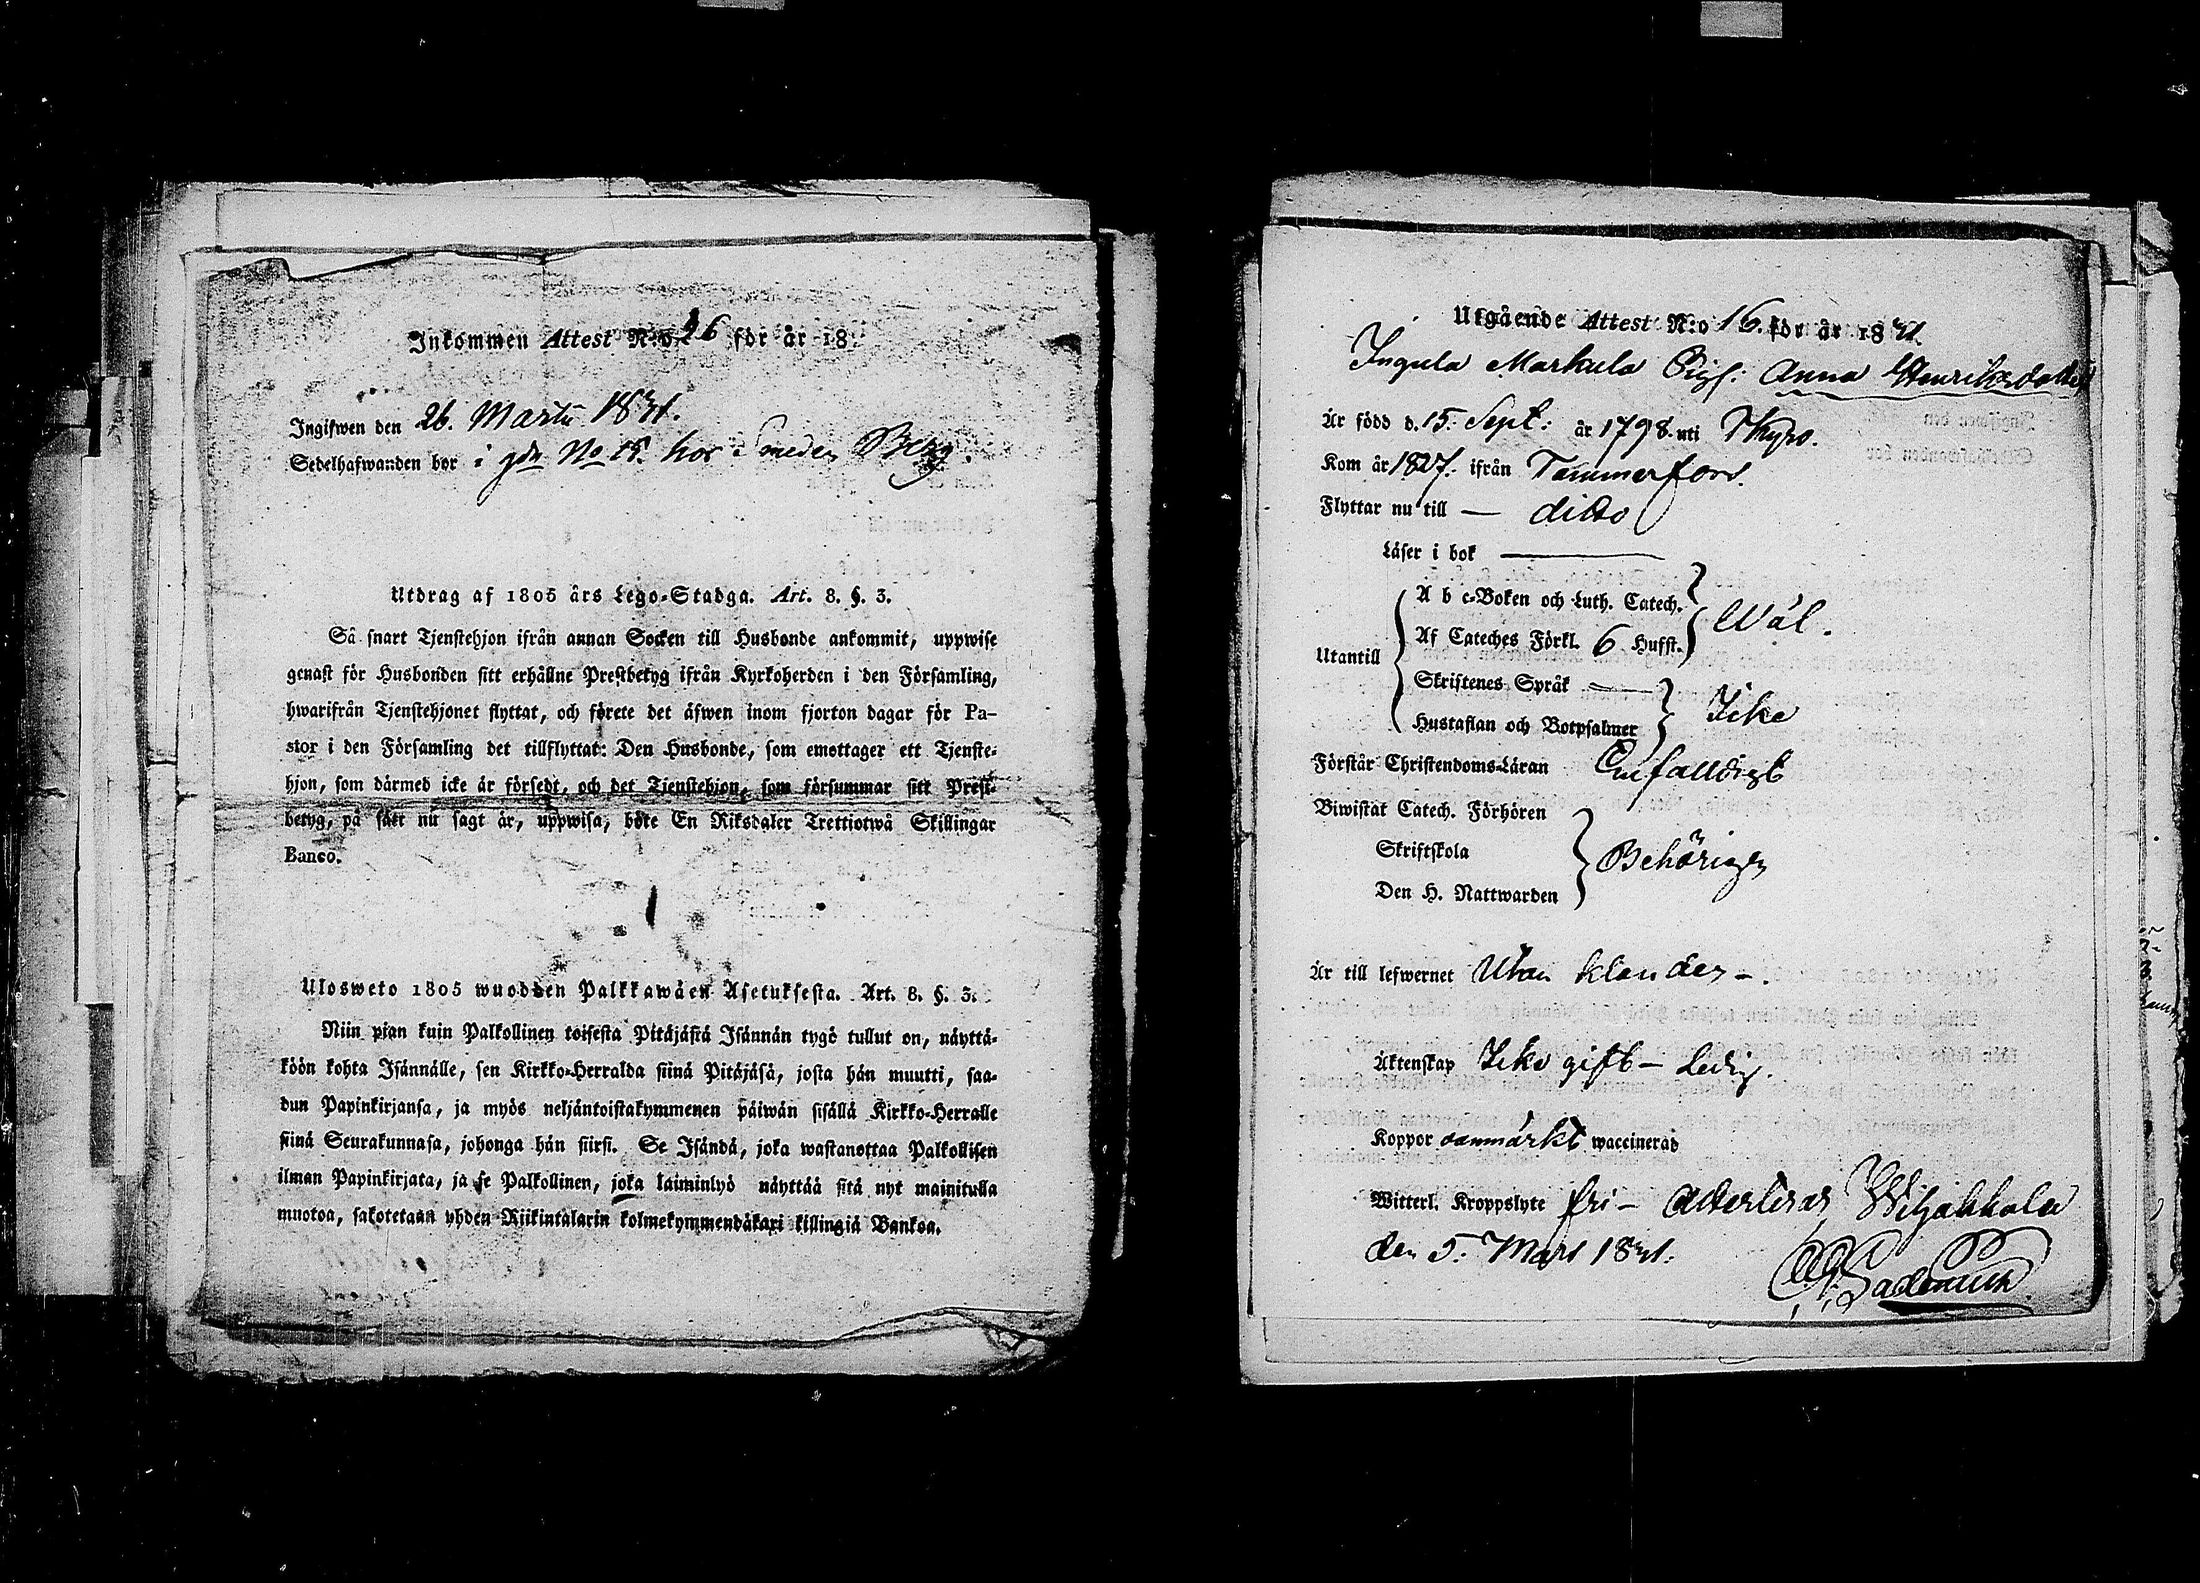 Inkommen Attest N:o 26 för år 18
Ingifwen den 26. Martii 1831.
Sedelhafwanden bor i gdn No 15. hos Smeden Berg.
Utdrag af 1805 års Lego-Stadga. Art. 8. §. 3.
Så snart Tjenstehjon ifrån annan Socken till Husbonde ankommit, uppwise
genast för Husbonden sitt erhållne Prestbetyg ifrån Kyrkoherden i den Församling,
hwarifrån Tjenstehjonet flyttat, och förete det äfwen inom fjorton dagar för Pa-
stor i den Församling det tillflyttat: Den Husbonde, som emottager ett Tjenste-
hjon, som därmed icke är försedt, och det Tjenstehjon, som försummar sitt Prest-
betyg, på sätt nu sagt är, uppwisa, böte En Riksdaler Trettiotwå Skillingar
Banco.
Ulosweto 1805 wuodden Palkkawäen Asetuksesta. Art. 8. §. 3.
Niin pian kuin Palkollinen toisesta Pitäjästä Isännän tygö tullut on, näyttä-
köön kohta Isännälle, sen Kirkko-Herralda siinä Pitäjäsä, josta hän muutti, saa-
dun Papinkirjansa, ja myös neljäntoistakymmenen päiwän sisällä Kirkko-Herralle
siinä Seurakunnasa, johonga hän siirsi. Se Isändä, joka wastanottaa Palkollisen
ilman Papinkirjata, ja se Palkollinen, joka laiminlyö näyttää sitä nyt mainitulla
muotoa, sakotetaan yhden Riikintalarin kolmekymmendäkaxi killingiä Bankoa.
Utgående Attest N:o 16. för år 1831.
Ingula Markula Pig: Anna Henriksdotter
Är född d. 15. Sept: år 1798. uti Thyro.
Kom år 1827. ifrån Tammerfors.
Flyttar nu till — ditto
Läser i bok —
A b c-Boken och Luth. Catech.
Af Cateches Förkl. 6 Hufst. Wäl.
Utantill
Skriftenes Språk —
Hustaflan och Botpsalmer Icke
Förstår Christendoms-Läran Enfalldigt
Biwistat Catech. Förhören
Skriftskola Behörigen
Den H. Nattwarden
Är till lefwernet Utan klander —.
Äktenskap Icke gift — Ledig.
Koppor oanmärkt waccinerad
Witterl. Kroppslyte fri — Attesteras Wiljakkala
den 5. Mars 1831.